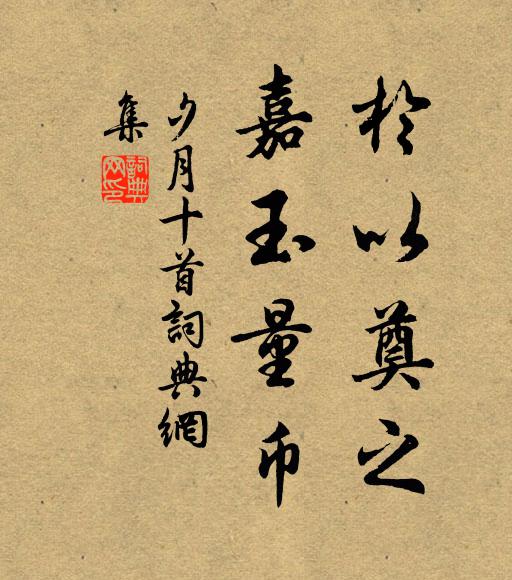 於以奠之
嘉玉量币
夕月十首詞典網
集
詞典
网印